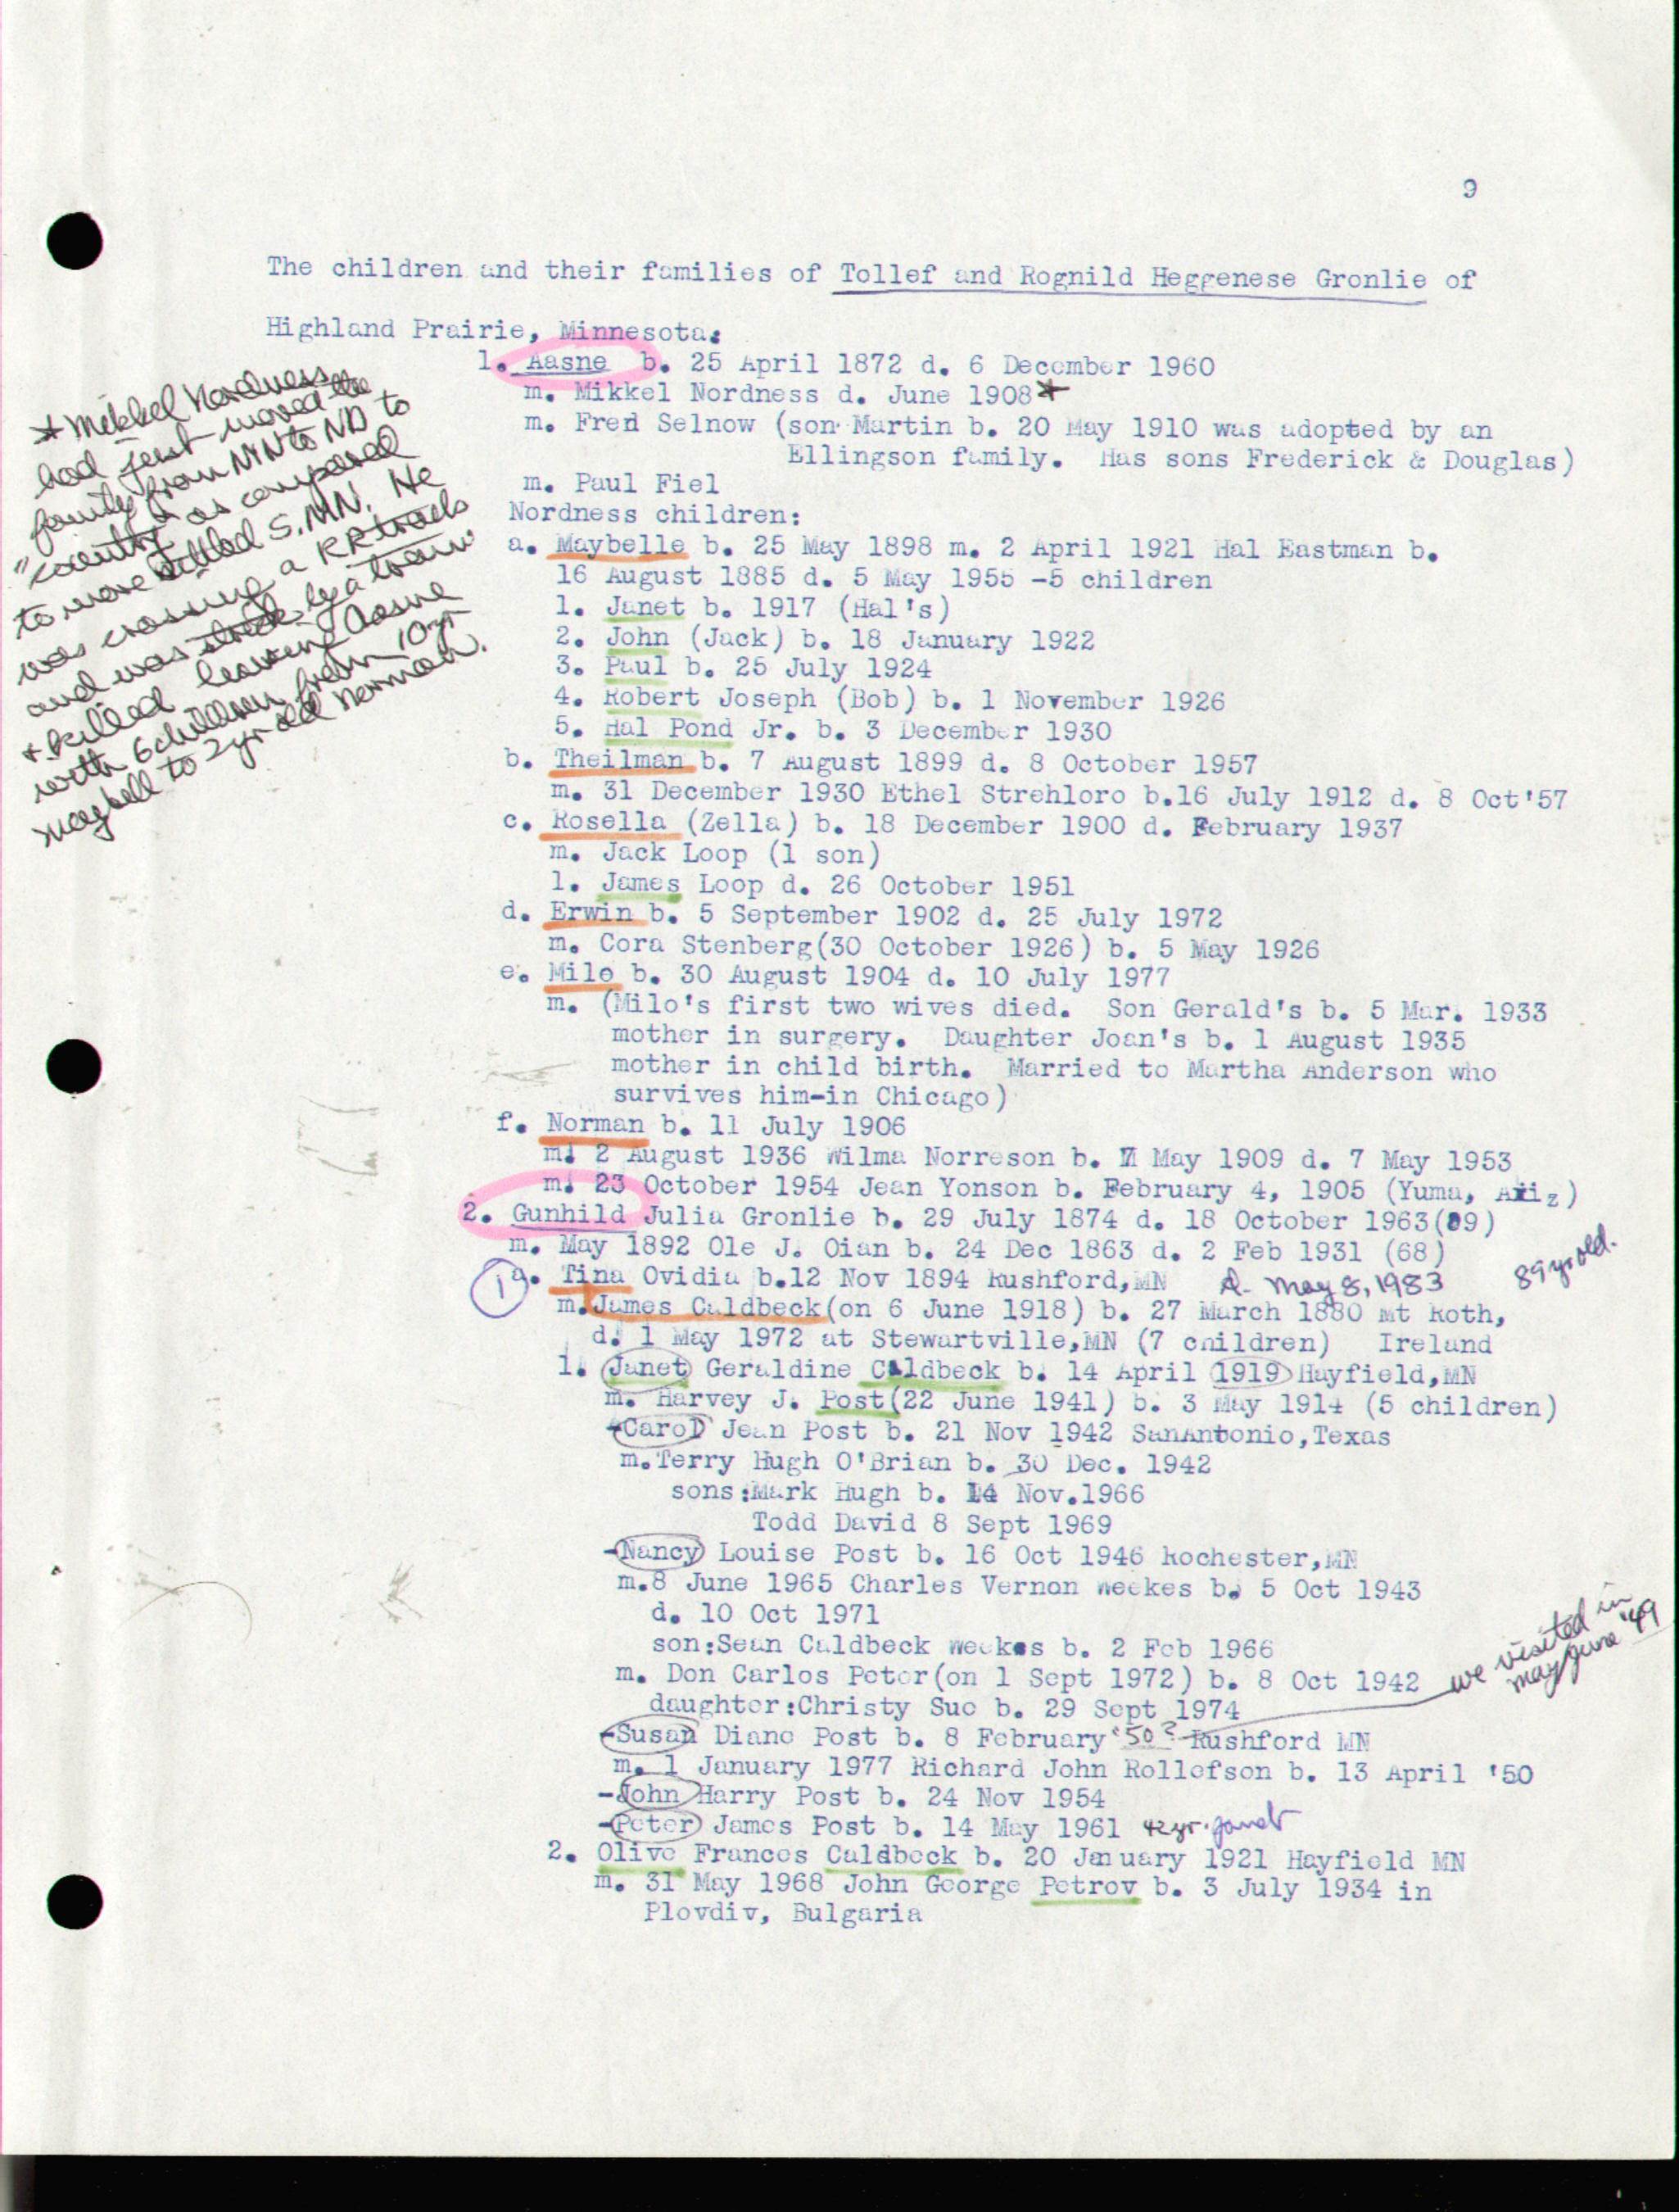 9
The children and their families of Tollef and Rognild Heggenese Gronlie of
Highland Prairie, Minnesota:
1. Aasne b. 25 April 1872 d. 6 December 1960
m. Mikkel Nordness d. June 1908*
m. Fred Selnow (son Martin b. 20 May 1910 was adopted by an
Ellingson family. Has sons Frederick & Douglas)
m. Paul Fiel
Nordness children:
a. Maybelle b. 25 May 1898 m. 2 April 1921 Hal Eastman b.
16 August 1885 d. 5 May 1955 -5 children
1. Janet b. 1917 (Hal's)
2. John (Jack) b. 18 January 1922
3. Paul b. 25 July 1924
4. Robert Joseph (Bob) b. 1 November 1926
5. Hal Pond Jr. b. 3 December 1930
b. Theilman b. 7 August 1899 d. 8 October 1957
m. 31 December 1930 Ethel Strehloro b.16 July 1912 d. 8 Oct'57
c. Rosella (Zella) b. 18 December 1900 d. February 1937
m. Jack Loop (1 son)
1. James Loop d. 26 October 1951
d. Erwin b. 5 September 1902 d. 25 July 1972
m. Cora Stenberg(30 October 1926) b. 5 May 1926
e. Milo b. 30 August 1904 d. 10 July 1977
m. (Milo's first two wives died. Son Gerald's b. 5 Mar. 1933
mother in surgery. Daughter Joan's b. 1 August 1935
mother in child birth. Married to Martha Anderson who
survives him-in Chicago)
f. Norman b. 11 July 1906
m. 2 August 1936 Wilma Norreson b. 7 May 1909 d. 7 May 1953
m. 23 October 1954 Jean Yonson b. February 4, 1905 (Yuma, Ariz)
2. Gunhild Julia Gronlie b. 29 July 1874 d. 18 October 1963(89)
m. May 1892 Ole J. Oian b. 24 Dec 1863 d. 2 Feb 1931 (68)
1 a. Tina Ovidia b.12 Nov 1894 Rushford,MN d. May 8, 1983 89 yr old.
m.James Caldbeck(on 6 June 1918) b. 27 March 1880 Mt Roth,
d. 1 May 1972 at Stewartville,MN (7 children) Ireland
1. Janet Geraldine Caldbeck b. 14 April 1919 Hayfield,MN
m. Harvey J. Post(22 June 1941) b. 3 May 1914 (5 children)
-Carol Jean Post b. 21 Nov 1942 SanAntonio,Texas
m.Terry Hugh O'Brian b. 30 Dec. 1942
sons:Mark Hugh b. 14 Nov.1966
Todd David 8 Sept 1969
-Nancy Louise Post b. 16 Oct 1946 Rochester,MN
m.8 June 1965 Charles Vernon Weekes b. 5 Oct 1943
d. 10 Oct 1971
son:Sean Caldbeck Weekes b. 2 Feb 1966
m. Don Carlos Peter(on 1 Sept 1972) b. 8 Oct 1942
daughter:Christy Sue b. 29 Sept 1974
-Susan Diane Post b. 8 February '50? Rushford MN
m. 1 January 1977 Richard John Rollefson b. 13 April '50
-John Harry Post b. 24 Nov 1954
-Peter James Post b. 14 May 1961 42 yr. Janet
2. Olive Frances Caldbeck b. 20 January 1921 Hayfield MN
m. 31 May 1968 John George Petrov b. 3 July 1934 in
Plovdiv, Bulgaria
* Mikkel Nordness
had just moved the
family from MN to ND to
"country as compared
to more settled S. MN. He
was crossing a RR tracks
and was struck by a train
+ killed leaving Aasne
with 6 children from 10 yr
Maybell to 2 yr old Norman.
we visited in
May June '49